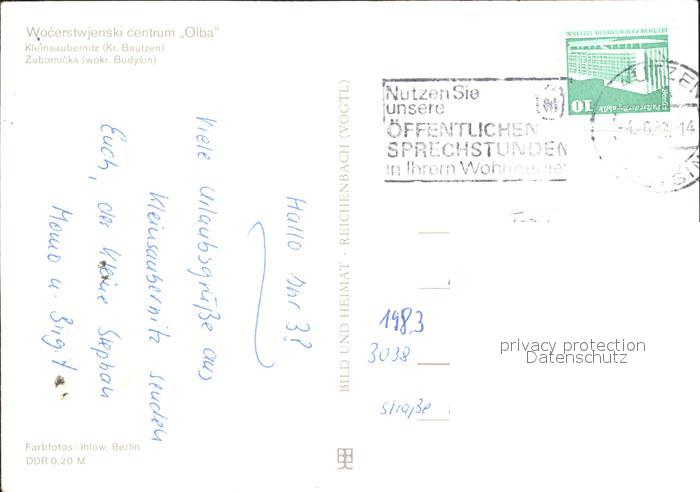 Wočerstwjenski centrum „Olba"
Kleinsaubernitz (Kr. Bautzen)
Zubornička (wokr. Budyšin)
Hallo Ihr 3!
Viele Urlaubsgrüße aus
Kleinsaubernitz senden
Euch, der kleine Stephan
Momo u. Birgit
Farbfotos: Ihlow, Berlin
DDR 0,20 M
BILD UND HEIMAT · REICHENBACH (VOGTL)
Nutzen Sie
unsere
ÖFFENTLICHEN
SPRECHSTUNDEN
in Ihrem
10
14
1983
3038
straße
privacy protection
Datenschutz